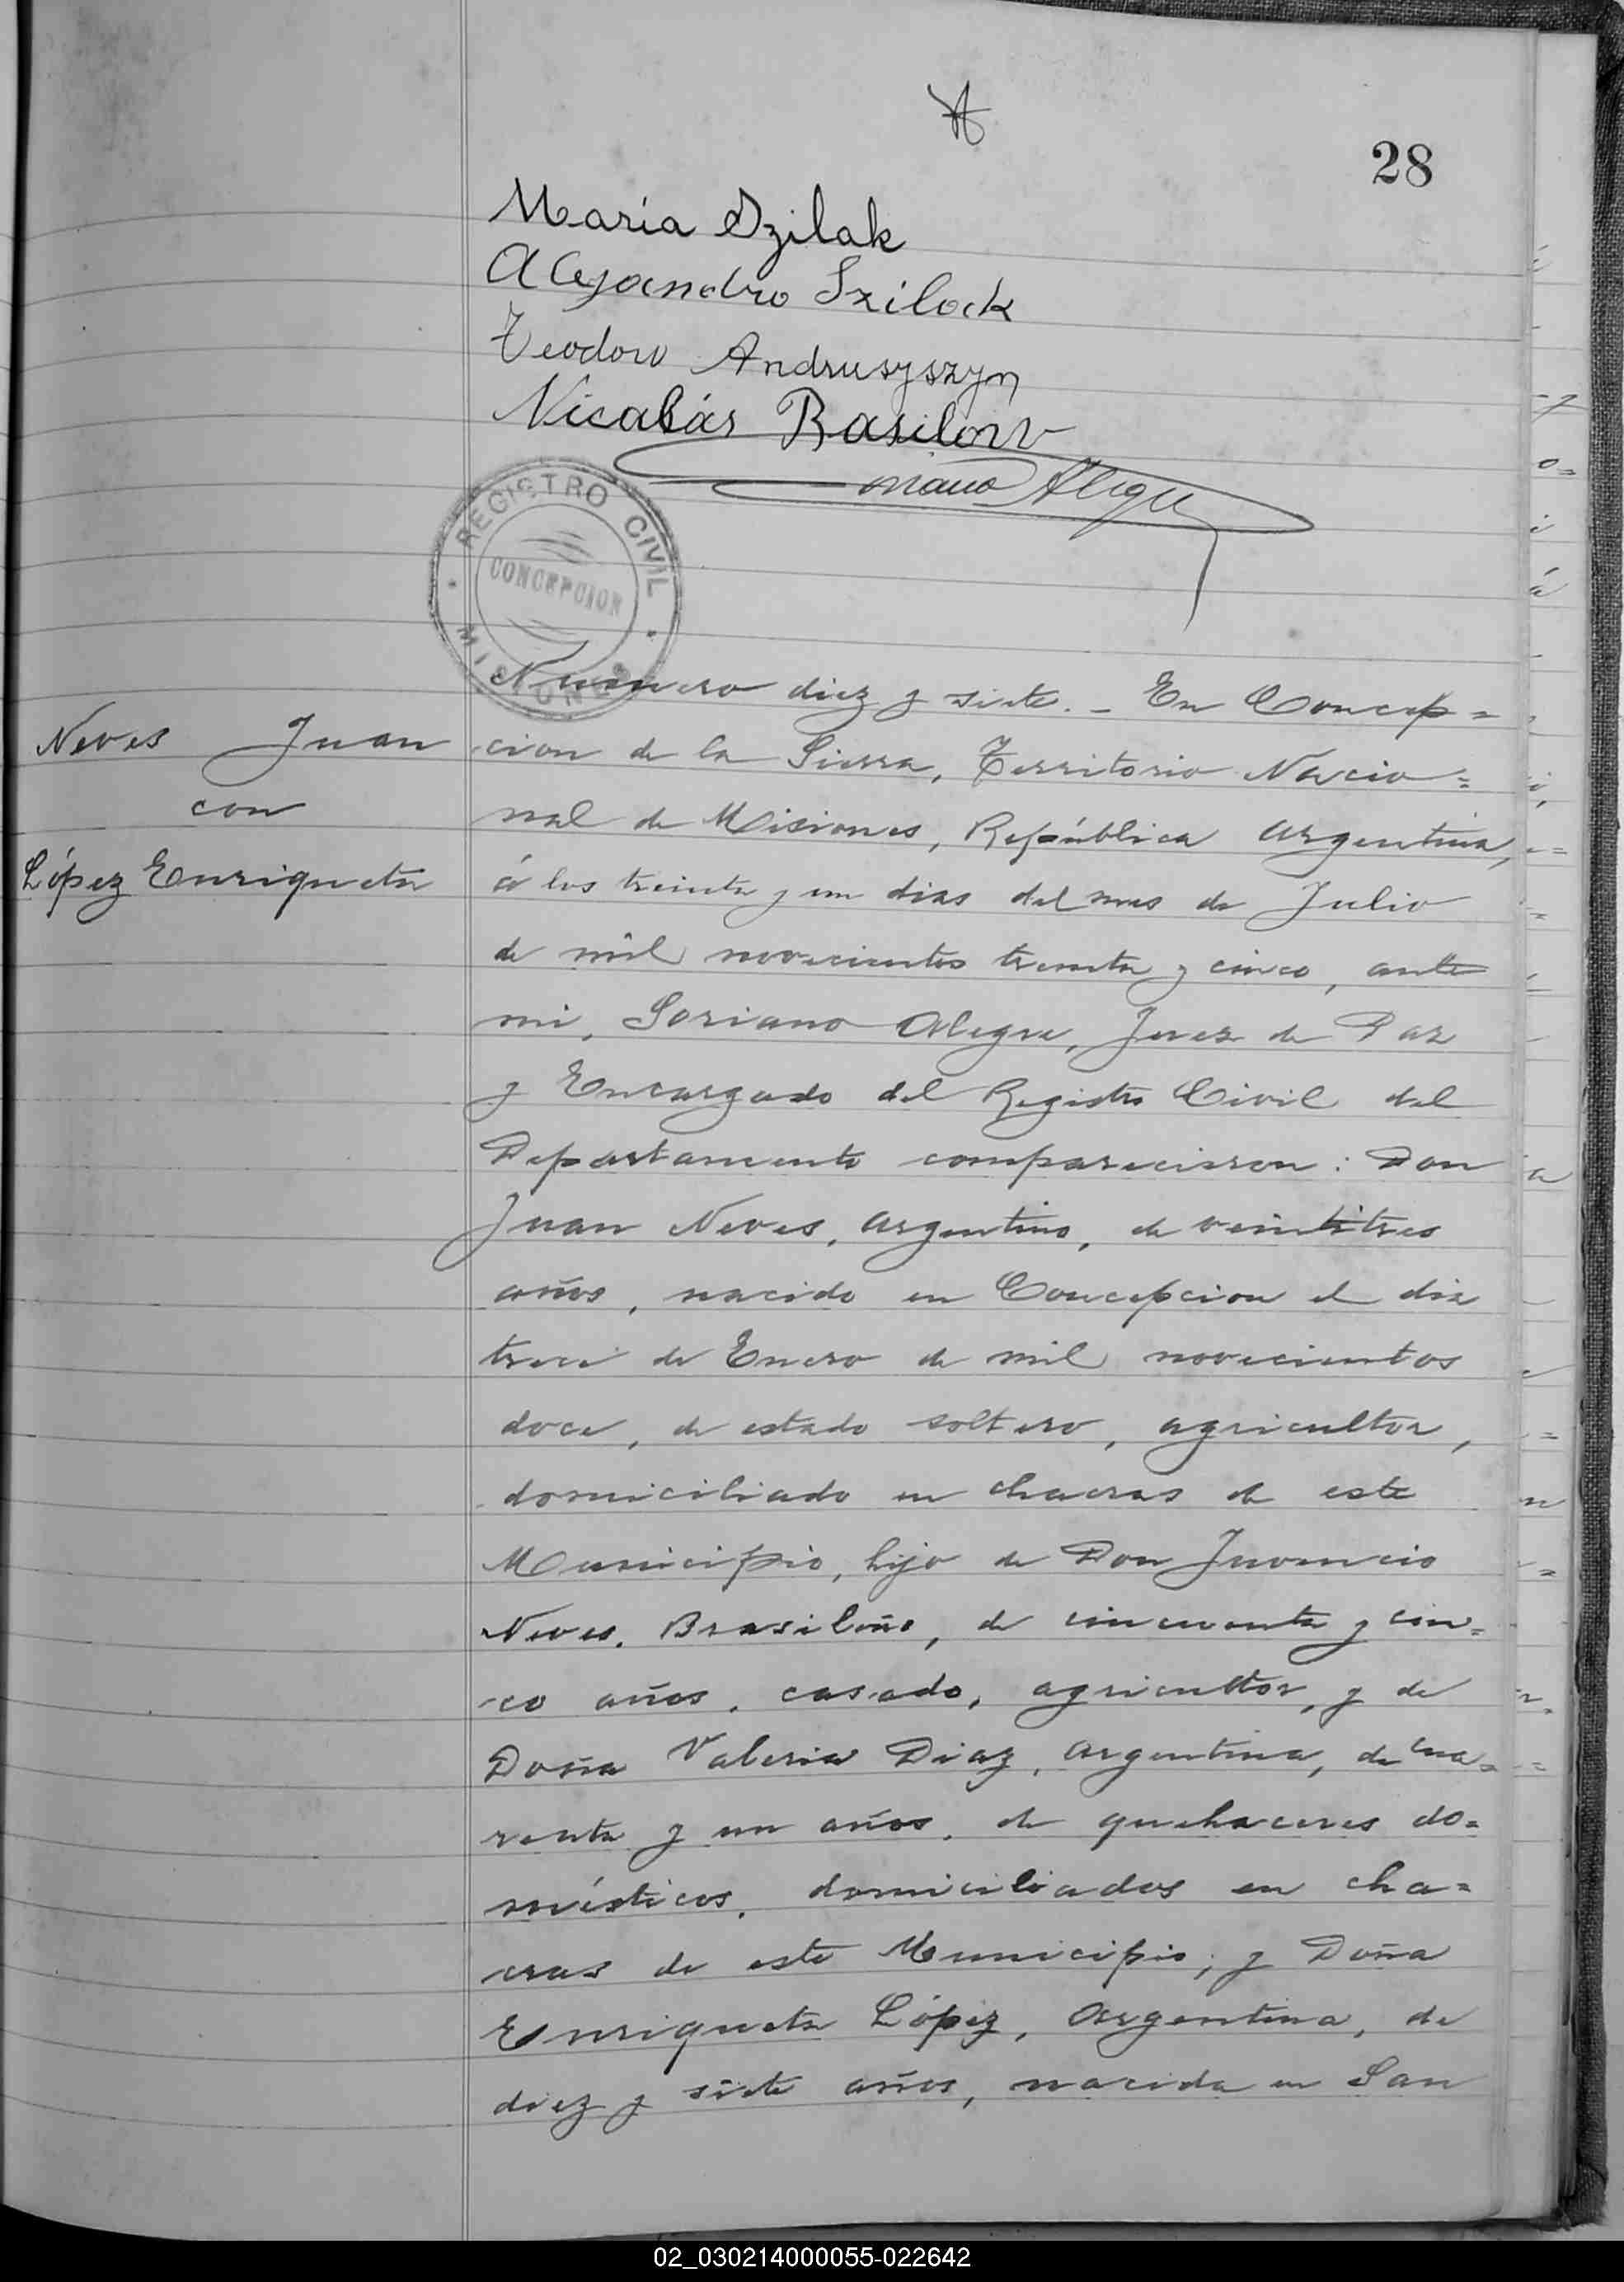 28
María Szilak
Alejandro Szilock
Teodoro Andrusyszyn
Nicolás Basilow
Soriano Alegre
REGISTRO CIVIL
CONCEPCION
MISIONES
Neves Juan
con
López Enriqueta
Numero diez y siete. _ En Concep=
cion de la Sierra, Territorio Nacio=
nal de Misiones, República Argentina,
á los treinta y un dias del mes de Julio
de mil novecientos treinta y cinco, ante
mi, Soriano Alegre, Juez de Paz
y Encargado del Registro Civil del
Departamento comparecieron: Don
Juan Neves, Argentino, de veintitres
años, nacido en Concepcion el dia
trece de Enero de mil novecientos
doce, de estado soltero, agricultor,
domiciliado en chacras de este
Municipio, hijo de Don Juvencio
Neves, Brasileño, de cincuenta y cin=
co años, casado, agricultor, y de
Doña Valeria Diaz, Argentina, de cua=
renta y un años, de quehaceres do=
mésticos, domiciliados en cha=
cras de este Municipio; y Doña
Enriqueta López, Argentina, de
diez y siete años, nacida en San
02_030214000055-022642